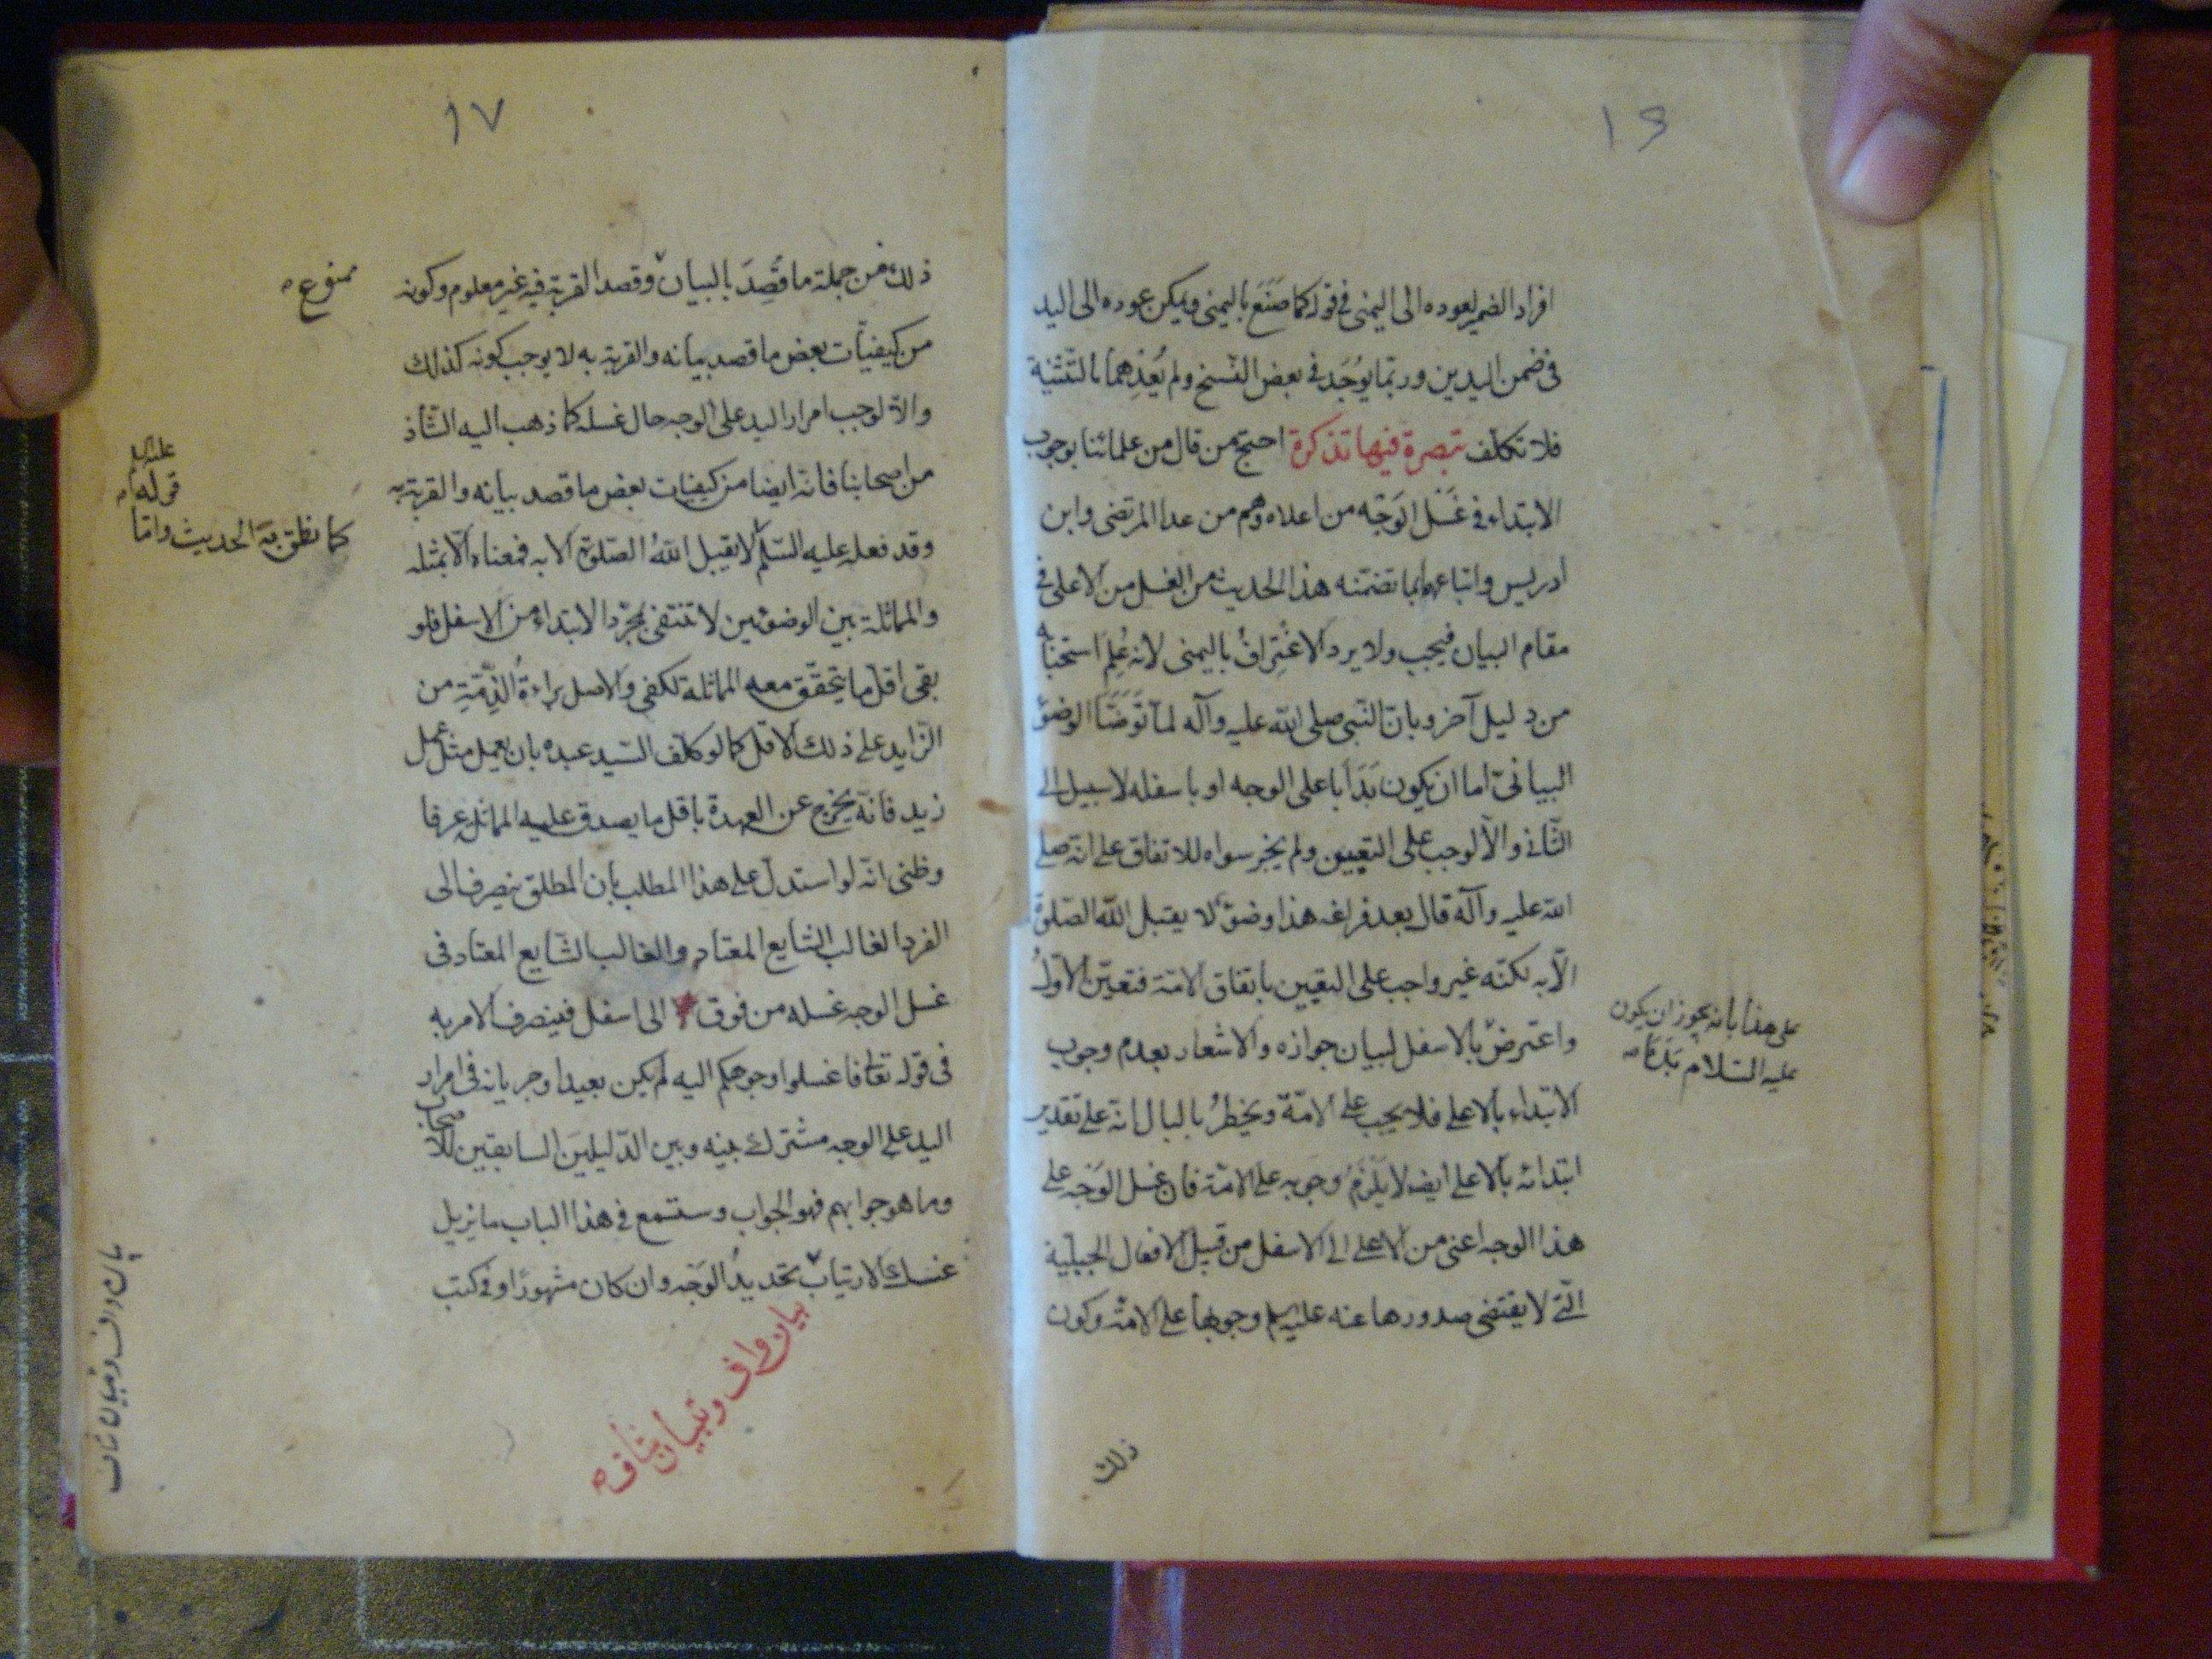 ١٦
افراد الضمير لعوده الى اليمنى فى قوله كما صَنَعَ باليمنى ويمكن عوده الى اليد
فى ضمن اليدين وربما يُوجَد فى بعض النسخ ولم يُعِدهما بالتثنية
فلا تكلف تبصرة فيها تذكرة احتج من قال من علمائنا بوجوب
الابتداء فى غَسْل الوَجْه من اعلاه وهم من عدا المرتضى وابن
ادريس واتباعهما بما تضمنه هذا الحديث من الغسل من الاعلى فى
مقام البيان فيجب ولا يرد الاغتِرافُ باليمنى لانه عُلِمَ استحبابه
من دليل آخر وبان النبى صلى الله عليه وآله لما تَوَضَّأَ الوضوء
البيانىّ اما ان يكون بَدَأ باعلى الوجه او باسفله لا سبيل الى
الثانى والا لوجب على التعيين ولم يجز سواه للاتفاق على انه صلى
الله عليه وآله قال بعد فراغه هذا وضوء لا يقبل الله الصلوة
الا به لكنه غير واجب على التعيين باتفاق الامة فتعين الاولُ
واعترض بالاسفل لبيان جوازه والاشعار بعدم وجوب
على هذا بانه يجوز ان يكون
عليه السلام بَدَءَ
الابتداء بالاعلى فلا يجب على الامة ويخطرُ بالبال انه على تقدير
ابتدائه بالاعلى ايضا لا يَلْزَمُ وجوبه على الامة فان غسل الوَجْهِ على
هذا الوجه اعنى من الاعلى الى الاسفل من قبيل الافعال الجبلّية
التى لا يقتضى صدورها عنه عليه السلم وجوبها على الامة وكون
ذلك
١٧
ذلك من جملة ما قُصِدَ بالبيان وقصد القربة فيه غير معلوم وكونه
ممنوع
من كيفيّات بعض ما قصد بيانه والقربة به لا يوجب كونه كذلك
والا لوجب امرار اليد على الوجه حال غسله كما ذهب اليه الشّاذ
من اصحابنا فانه ايضا من كيفيات بعض ما قصد بيانه والقربة به
وقد فعله عليه السلم لا يقبل اللهُ الصلوة الا به فمعناه الا بمثله
عليه السلم
قوله
كما نطق به الحديث واما
والمماثلة بين الوضوئين لا تنتفى بمجرّد الابتداء من الاسفل فلو
بقى اقلّ ما يتحقّق معه المماثلة لكفى والاصل براءةُ الذِّمّةِ من
الزّايد على ذلك الاقل كما لو كلّف السّيد عبده بان يعمل مثل عمل
زيد فانّه يخرج عن العهدة باقل ما يصدق عليه المماثل عرفا
وظنى انه لو استدل على هذا المطلب بان المطلق ينصرف الى
الفرد الغالب الشايع المعتاد والغالب الشّايع المعتاد فى
غسل الوجه غسله من فوق الى اسفل فينصرف الامر به
فى قوله تعالى فاغسلوا وجوهكم اليه لم يكن بعيدا وجريانه فى امرار
اليد على الوجه مشترك بينه وبين الدّليلين السابقين للاصحاب
وما هو جوابهم فهو الجواب وستسمع فى هذا الباب ما يزيل
عنك الارتياب تحديدُ الوَجْه وان كان مشهورًا وفى كتب
بيان واف وتبيان شاف
بيان واف وتبيان شاف